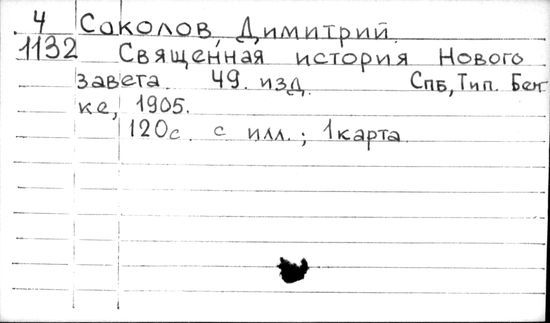 4 Соколов, Димитрий.
1132 Священная история Нового
завета. 49. изд. Спб, Тип. Бен-
ке, 1905.
120с. с илл.; 1 карта